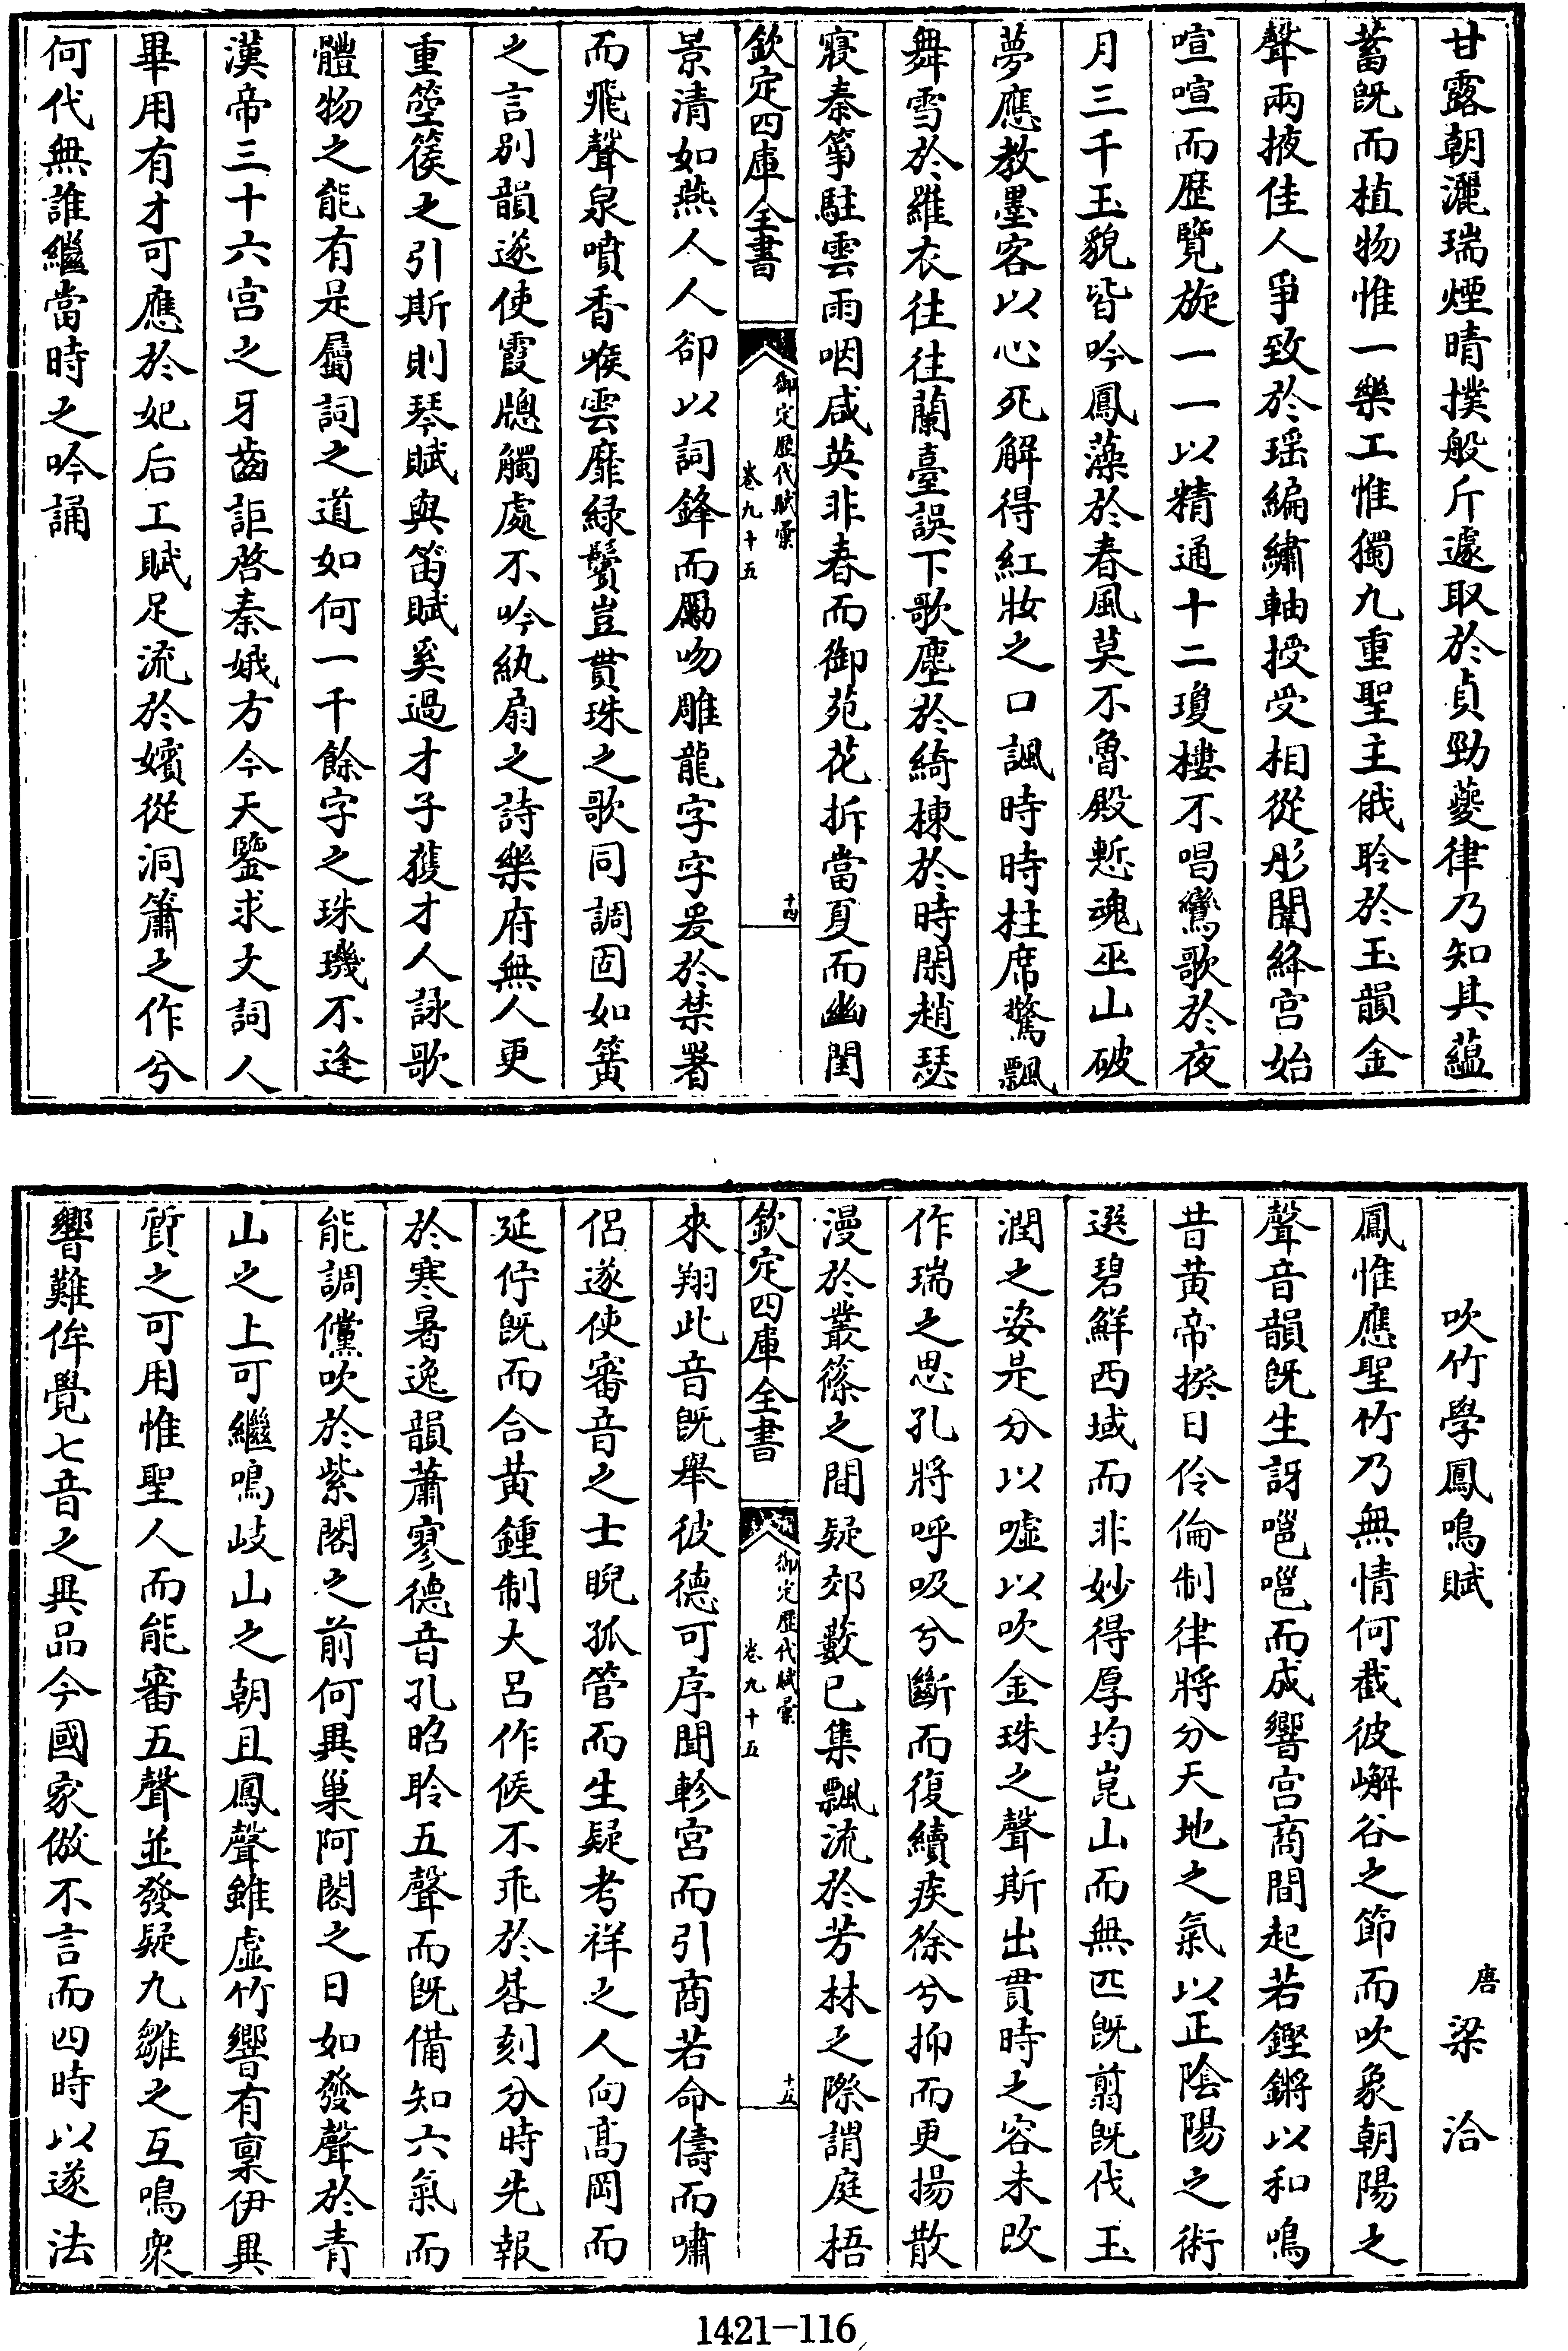 甘露朝灑瑞煙晴撲般斤遽取於貞勁夔律乃知其蘊
蓄旣而植物惟一樂工惟獨九重聖主俄聆於玉韻金
聲兩掖佳人爭致於瑶編繡軸授受相從彤闈絳宫始
喧喧而歴覽旋一一以精通十二瓊樓不唱鸞歌於夜
月三千玉貌皆吟鳳藻於春風莫不魯殿慙魂巫山破
夢應教墨客以心死解得紅妝之口諷時時柱席驚飄
舞雪於羅衣往往蘭臺誤下歌塵於綺棟於時閑趙瑟
寢秦筝駐雲雨咽咸英非春而御苑花拆當夏而幽閨
欽定四庫全書
御定歴代賦彙
卷九十五
十四
景清如燕人人卻以詞鋒而勵吻雕龍字字爰於禁署
而飛聲泉噴香喉雲靡緑鬢豈貫珠之歌同調固如簧
之言别韻遂使霞牕觸處不吟紈扇之詩樂府無人更
重箜篌之引斯則琴賦與笛賦奚過才子獲才人詠歌
體物之能有是屬詞之道如何一千餘字之珠璣不逢
漢帝三十六宫之牙齒詎啓秦娥方今天鑒求文詞人
畢用有才可應於妃后工賦足流於嬪從洞簫之作兮
何代無誰繼當時之吟誦
吹竹學鳳鳴賦
唐 梁洽
鳳惟應聖竹乃無情何截彼嶰谷之節而吹象朝陽之
聲音韻旣生訝嗈嗈而成響宫商間起若鏗鏘以和鳴
昔黄帝揆日伶倫制律將分天地之氣以正陰陽之術
選碧鮮西域而非妙得厚均崑山而無匹旣翦旣伐玉
潤之姿是分以嘘以吹金珠之聲斯出貫時之容未改
作瑞之思孔將呼吸兮斷而復續疾徐兮抑而更揚散
漫於叢篠之間疑郊藪已集飄流於芳林之際謂庭梧
欽定四庫全書
御定歴代賦彙
卷九十五
十五
來翔此音旣舉彼德可序聞軫宫而引商若命儔而嘯
侶遂使審音之士睨孤管而生疑考祥之人向髙岡而
延佇旣而合黄鍾制大呂作候不乖於晷刻分時先報
於寒暑逸韻蕭寥德音孔昭聆五聲而旣備知六氣而
能調儻吹於紫閣之前何異巢阿閣之日如發聲於青
山之上可繼鳴岐山之朝且鳳聲雖虛竹響有稟伊異
質之可用惟聖人而能審五聲並發疑九雛之互鳴衆
響難侔覺七音之異品今國家倣不言而四時以遂法
1421-116